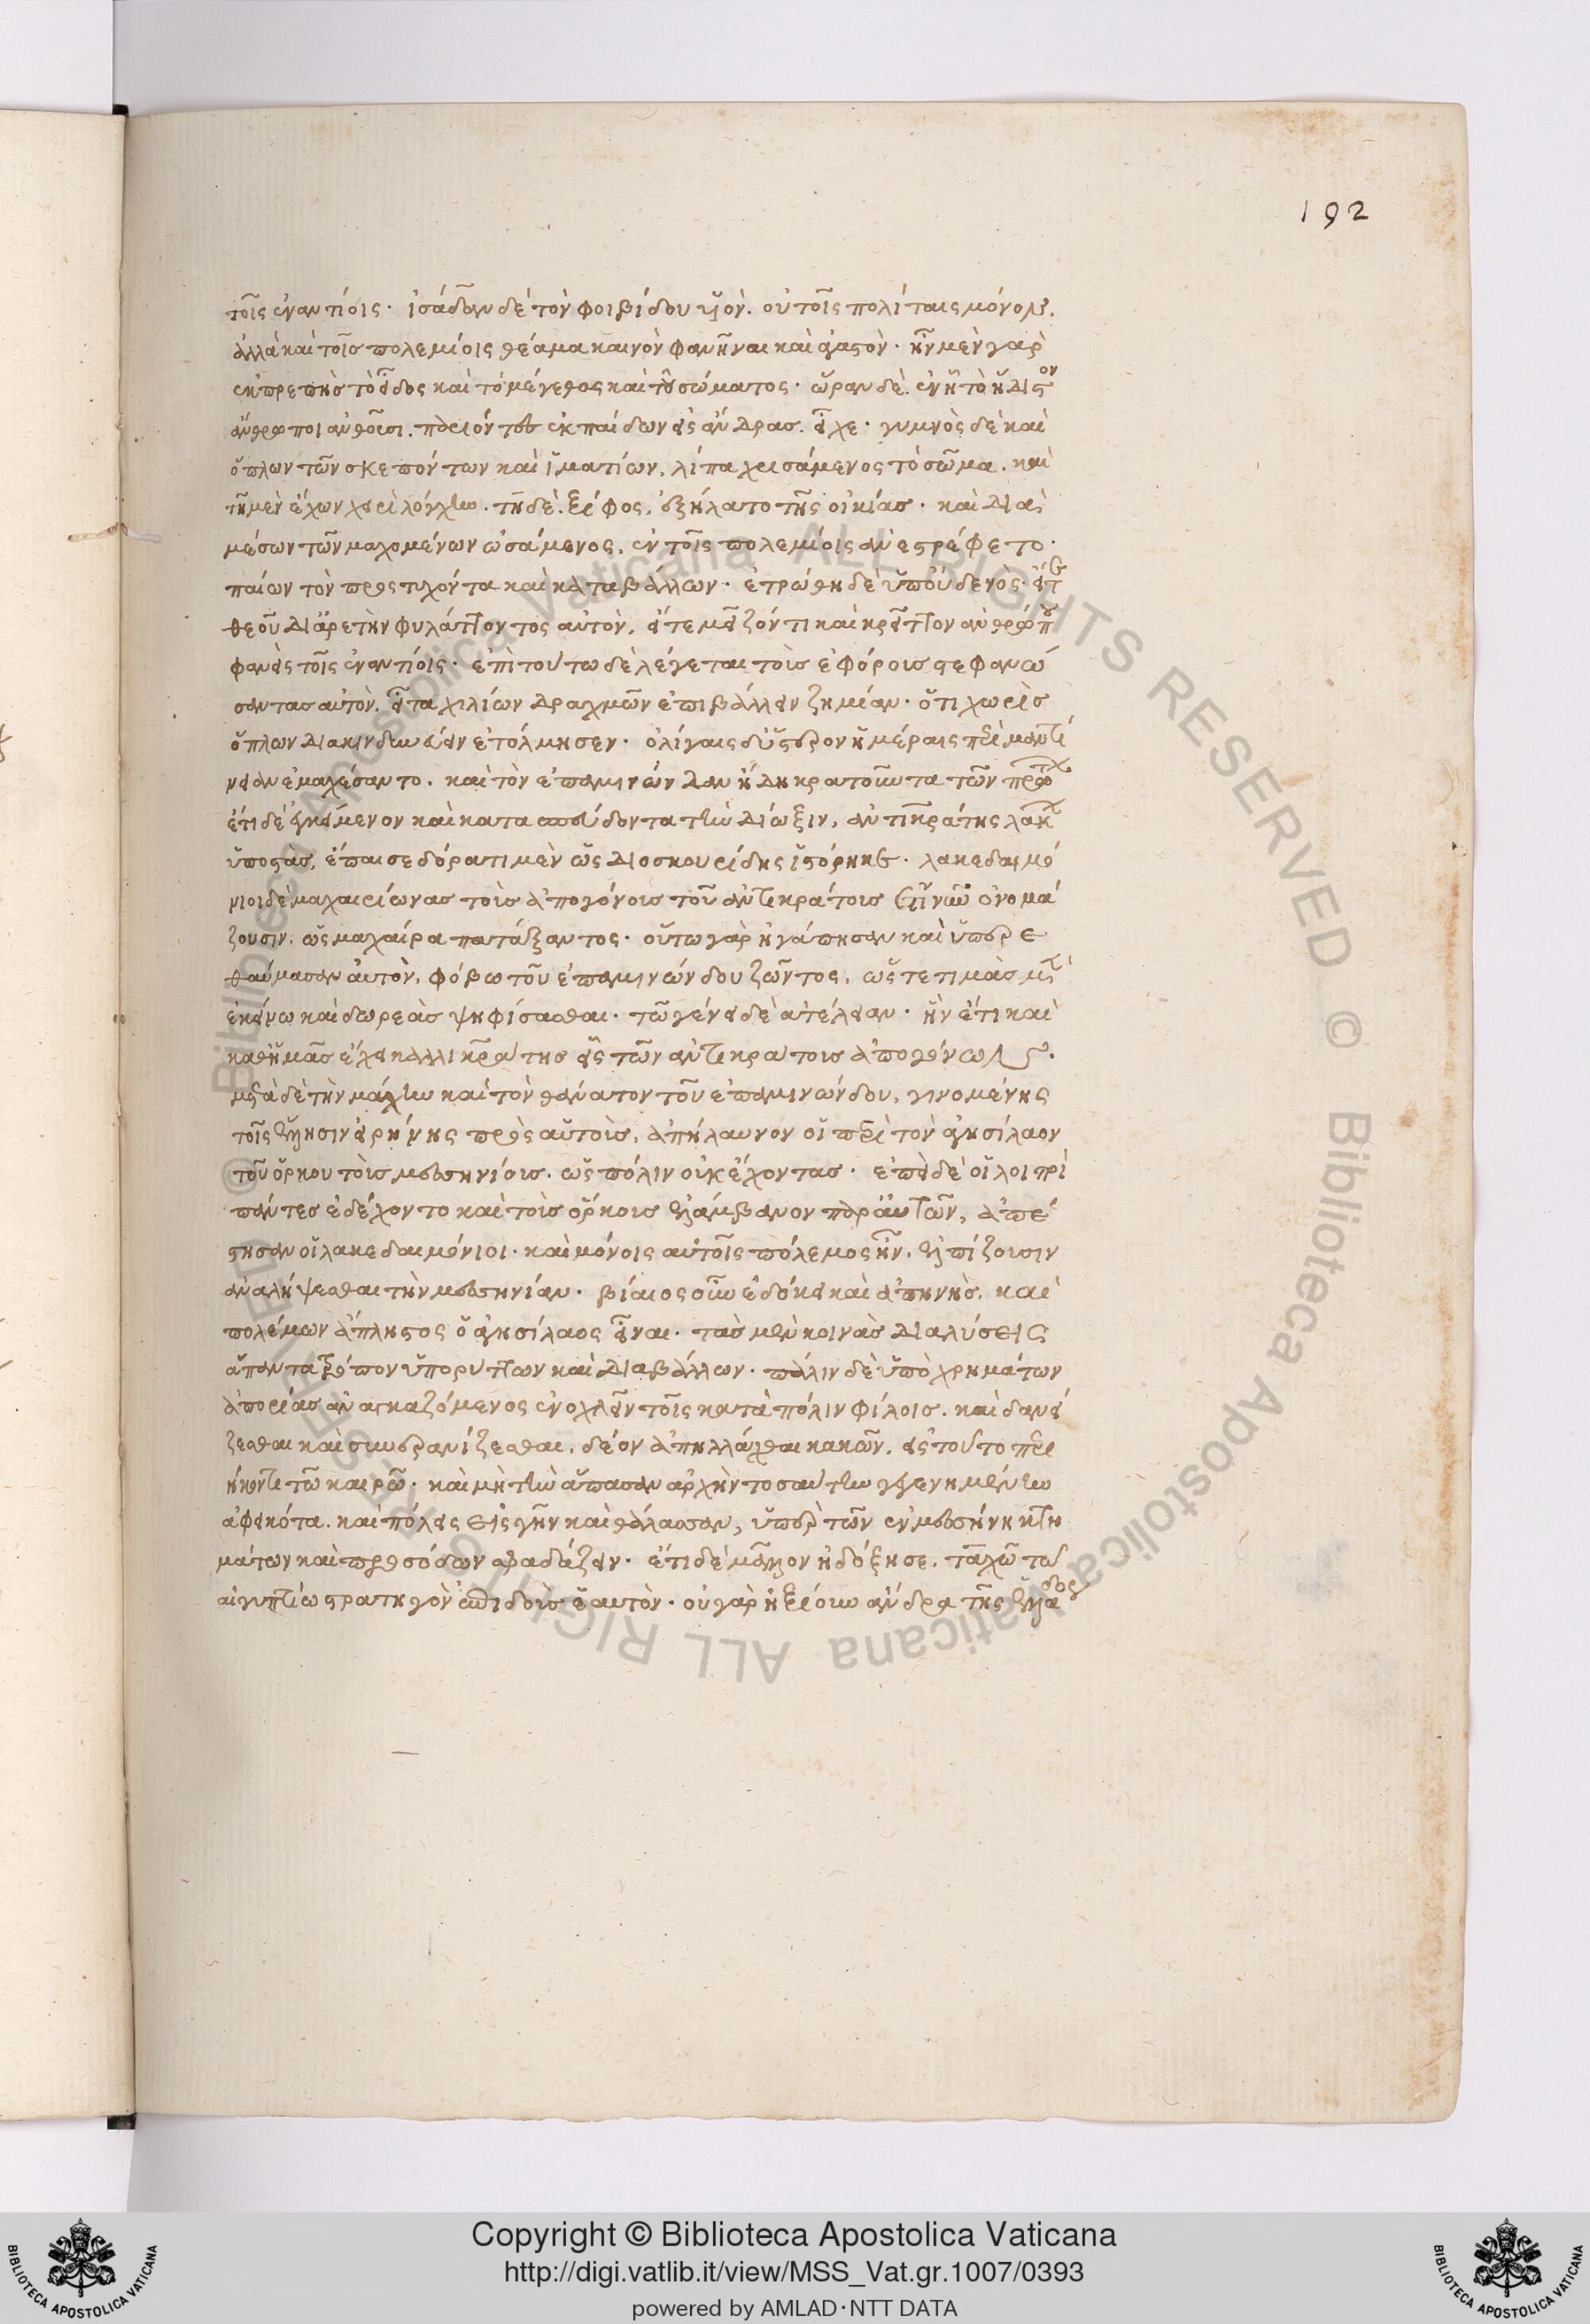 192
τοῖς ἐναντίοις· ἰσάδαν δὲ τὸν φοιβίδου υἱὸν. οὐ τοῖς πολίταις μόνον.
ἀλλὰ καὶ τοῖς πολεμίοις θέαμα καινὸν φανῆναι καὶ ἀγαστὸν· ἦν μὲν γὰρ
ἐκπρεπὴς τὸ εἶδος καὶ τὸ μέγεθος καὶ τοῦ σώματος· ὥραν δὲ. ἐν ᾗ τὸ ἥδιστον
ἄνθρωποι ἀνθοῦσι. παριόντες ἐκ παίδων εἰς ἄνδρας. εἶχε· γυμνὸς δὲ καὶ
ὅπλων τῶν σκεπόντων καὶ ἱματίων, λίπα χρισάμενος τὸ σῶμα. καὶ
τῇ μὲν ἔχων χειρὶ λόγχην. τῇ δὲ. ξίφος, ἐξήλατο τῆς οἰκίας· καὶ διὰ
μέσων τῶν μαχομένων ὠσάμενος, ἐν τοῖς πολεμίοις ἀνεστρέφετο·
παίων τὸν προστυχόντα καὶ καταβάλλων· ἐτρώθη δὲ ὑπ' οὐδενὸς· εἴτε
θεοῦ δι' ἀρετὴν φυλάττοντος αὐτὸν, εἴτε μεῖζόν τι καὶ κρεῖττον ἀνθρώπου
φανεὶς τοῖς ἐναντίοις· ἐπὶ τούτω δὲ λέγεται τοὺς ἐφόρους στεφανώ
σαντας αὐτὸν. εἶτα χιλίων δραχμῶν ἐπιβάλλειν ζημίαν· ὅτι χωρὶς
ὅπλων διακινδυνεύειν ἐτόλμησεν· ὀλίγαις δ' ὕστερον ἡμέραις περὶ μαντί
νειαν ἐμαχέσαντο. καὶ τὸν ἐπαμινώνδαν ἤδη κρατοῦντα τῶν πρώτων
ἔτι δὲ ἐγκείμενον καὶ κατασπεύδοντα τὴν δίωξιν, ἀντικράτης λάκων
ὑποστὰς, ἔπαισε δόρατι μὲν ὡς διοσκουρίδης ἱστόρηκε. λακεδαιμό
νιοι δὲ μαχαιρίωνας τοὺς ἀπογόνους τοῦ ἀντικράτους ἔτι νῦν ὀνομά
ζουσιν. ὡς μαχαίρα πατάξαντος· οὕτω γὰρ ἠγάπησαν καὶ ὑπερε
θαύμασαν αὐτὸν, φόβω τοῦ ἐπαμινώνδου ζῶντος, ὥστε τιμὰς μὲν
ἐκείνω καὶ δωρεὰς ψηφίσασθαι· τῷ γένει δὲ ἀτέλειαν· ἣν ἔτι καὶ
καθ' ἡμᾶς ἔχει καλλικράτης εἷς τῶν ἀντικράτους ἀπογόνων.
μετὰ δὲ τὴν μάχην καὶ τὸν θάνατον τοῦ ἐπαμινώνδου, γινομένης
τοῖς ἕλλησιν εἰρήνης πρὸς αὑτοὺς, ἀπήλαυνον οἱ περὶ τὸν ἀγησίλαον
τοῦ ὅρκου τοὺς μεσσηνίους. ὡς πόλιν οὐκ ἔχοντας· ἐπεὶ δὲ οἱ λοιποὶ
πάντες ἐδέχοντο καὶ τοὺς ὅρκους ἐλάμβανον παρ' αὐτῶν, ἀπέ
στησαν οἱ λακεδαιμόνιοι· καὶ μόνοις αὐτοῖς πόλεμος ἦν, ἐλπίζουσιν
ἀναλήψεσθαι τὴν μεσσηνίαν· βίαιος οὖν ἐδόκει καὶ ἀπηνὴς. καὶ
πολέμων ἄπληστος ὁ ἀγησίλαος εἶναι· τὰς μὲν κοινὰς διαλύσεις
ἅπαντα τρόπον ὑπορύττων καὶ διαβάλλων· πάλιν δὲ ὑπὸ χρημάτων
ἀπορίας ἀναγκαζόμενος ἐνοχλεῖν τοῖς κατὰ πόλιν φίλοις. καὶ δανεί
ζεσθαι καὶ συνερανίζεσθαι, δέον ἀπηλλάχθαι κακῶν, εἰς τοῦτο περι
ήκοντι τῷ καιρῷ· καὶ μὴ τὴν ἅπασαν ἀρχὴν τοσαύτην γεγενημένην
ἀφεικότα. καὶ πόλεις εἰς γῆν καὶ θάλασσαν, ὑπὲρ τῶν ἐν μεσσήνη κτη
μάτων καὶ προσόδων σφαδάζειν· ἔτι δὲ μᾶλλον ἠδόξησε. τάχω τῷ
αἰγυπτίω στρατηγὸν ἐπιδοὺς ἑαυτὸν· οὐ γὰρ ἠξίουν ἄνδρα τῆς ἑλλάδος
© Biblioteca Apostolica Vaticana ALL RIGHTS RESERVED
© Biblioteca Apostolica Vaticana ALL RIGHTS RESERVED
BIBLIOTECA APOSTOLICA VATICANA
Copyright © Biblioteca Apostolica Vaticana
http://digi.vatlib.it/view/MSS_Vat.gr.1007/0393
powered by AMLAD·NTT DATA
BIBLIOTECA APOSTOLICA VATICANA